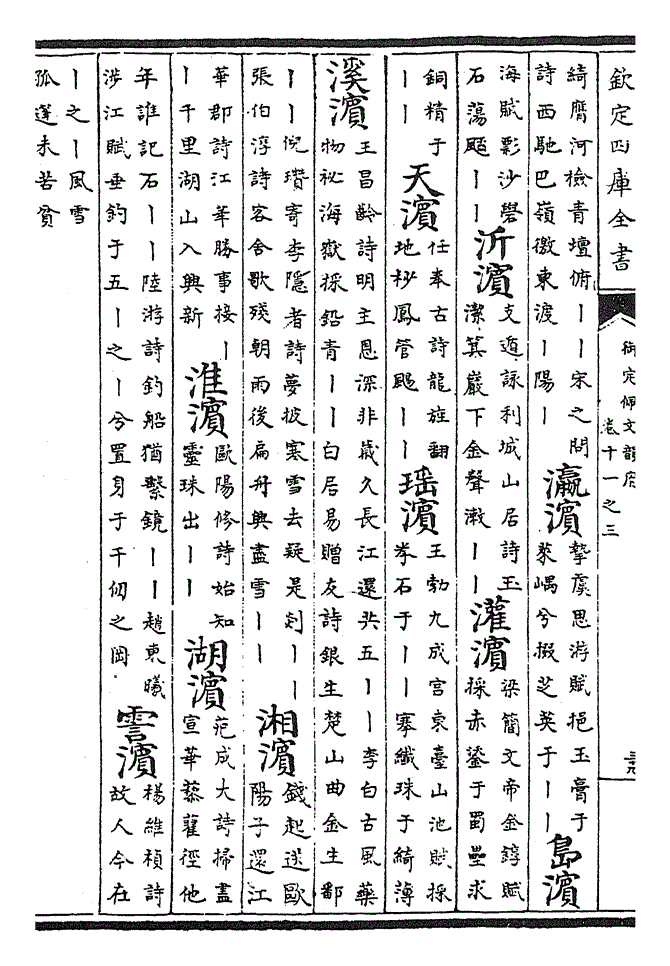 欽定四庫全書
御定佩文韻府
卷十一之三
綺膺河檢青壇俯丨丨宋之問
詩西馳巴嶺徼東渡丨陽丨
瀛濱
摯虞思游賦挹玉膏于
萊嵎兮掇芝英于丨丨
島濱
海賦影沙礐
石蕩颸丨丨
沂濱
支遁詠利城山居詩玉
潔箕巖下金聲漱丨丨
灌濱
梁簡文帝金錞賦
採赤鍙于蜀壘求
銅精于
丨丨
天濱
任奉古詩龍旌翻
地杪鳳管颺丨丨
瑶濱
王勃九成宫東臺山池賦採
拳石于丨丨搴纖珠于綺薄
溪濱
王昌齡詩明主恩深非歲久長江還共五丨丨李白古風藥
物秘海嶽採鉛青丨丨白居易贈友詩銀生楚山曲金生鄱
丨丨倪瓚寄李隱者詩夢披寒雪去疑是剡丨丨
張伯淳詩客舍歌殘朝雨後扁舟興盡雪丨丨
湘濱
錢起送歐
陽子還江
華郡詩江華勝事接丨
丨千里湖山入興新
淮濱
歐陽修詩始知
靈珠出丨丨
湖濱
范成大詩掃盡
宣華藜藋徑他
年誰記石丨丨陸游詩釣船猶繫鏡丨丨趙東曦
涉江賦垂釣于五丨之丨兮置身于千仞之岡
霅濱
楊維楨詩
故人今在
丨之丨風雪
孤蓬未苦貧